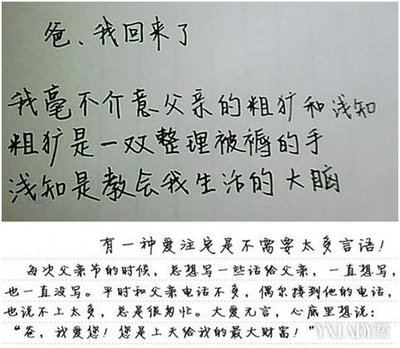 爸、我回来了
我毫不介意父亲的粗犷和浅知
粗犷是一双整理被褥的手
浅知是教会我生活的大脑
有一种爱注定是不需要太多言语!
每次父亲节的时候,总想写一些话给父亲,一直想写,
也一直没写。平时和父亲电话不多,偶尔接到他的电话,
也说不上太多,总是很匆忙。大爱无言,心底里想说:
“爸,我爱您!您是上天给我的最大财富!”